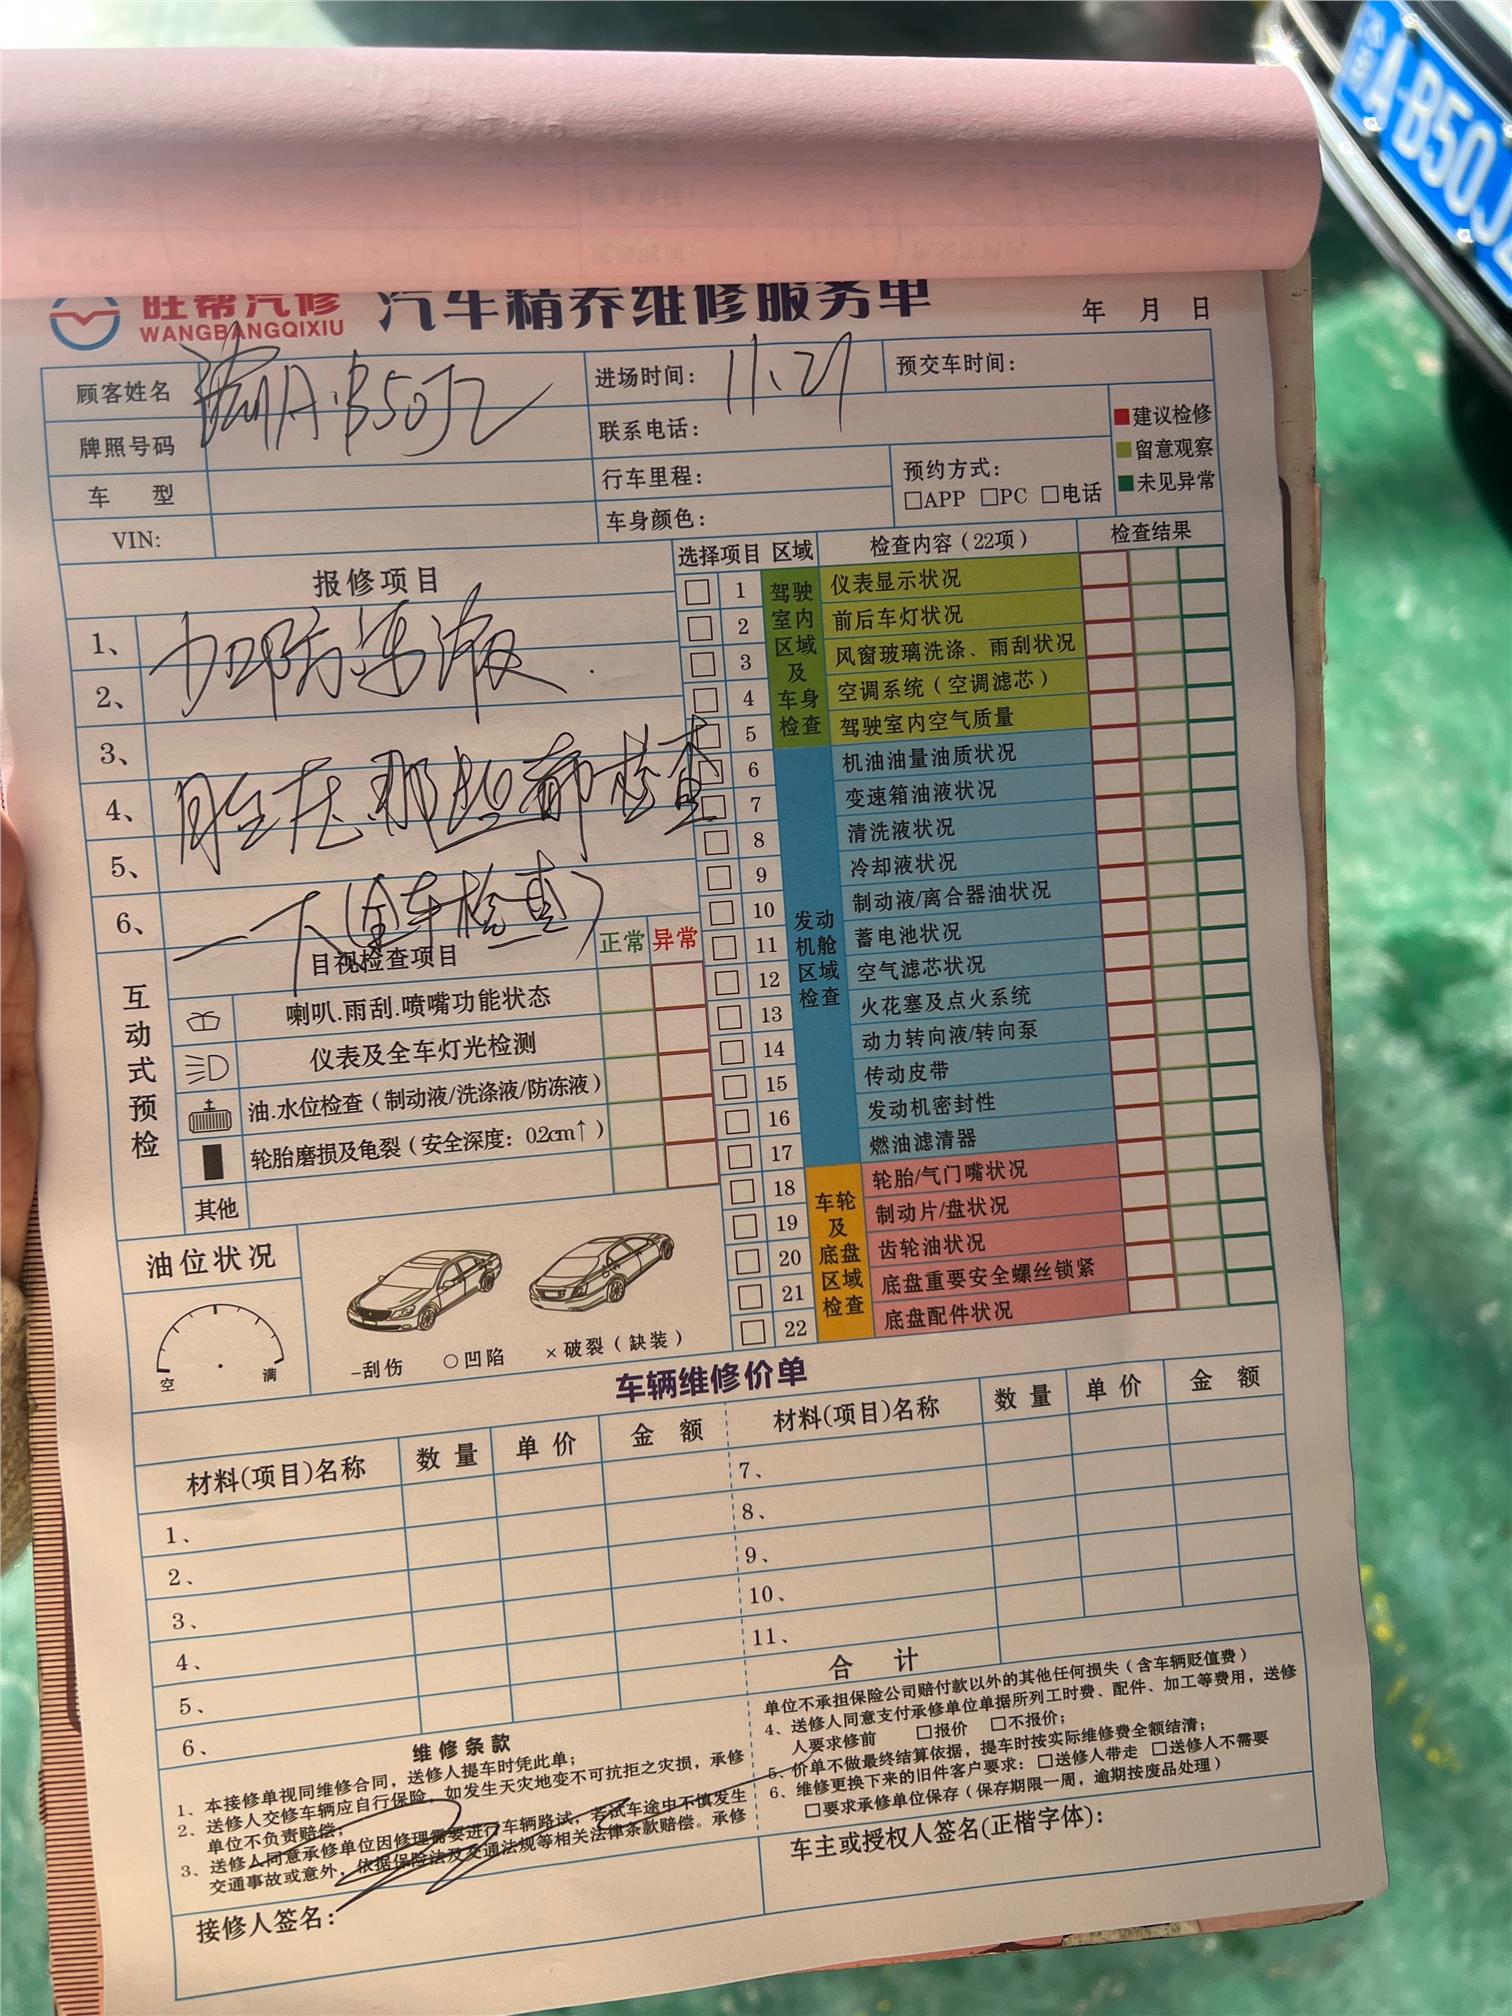 A·B50J
旺帮汽修
WANGBANGQIXIU
汽车精养维修服务单
年 月 日
顾客姓名
渝A·B50J2
进场时间: 11、21
预交车时间:
牌照号码
联系电话:
■建议检修
■留意观察
■未见异常
车 型
行车里程:
预约方式:
□APP □PC □电话
VIN:
车身颜色:
报修项目
1、
2、
加防冻液.
3、
4、
胎压那些都检查
5、
6、
一下(全车检查)
互动式预检
目视检查项目 正常 异常
喇叭.雨刮.喷嘴功能状态
仪表及全车灯光检测
油.水位检查(制动液/洗涤液/防冻液)
轮胎磨损及龟裂(安全深度:0.2cm↑)
其他
选择项目 区域 检查内容(22项) 检查结果
驾驶室内区域及车身检查
□ 1 仪表显示状况
□ 2 前后车灯状况
□ 3 风窗玻璃洗涤、雨刮状况
□ 4 空调系统(空调滤芯)
□ 5 驾驶室内空气质量
发动机舱区域检查
□ 6 机油油量油质状况
□ 7 变速箱油液状况
□ 8 清洗液状况
□ 9 冷却液状况
□ 10 制动液/离合器油状况
□ 11 蓄电池状况
□ 12 空气滤芯状况
□ 13 火花塞及点火系统
□ 14 动力转向液/转向泵
□ 15 传动皮带
□ 16 发动机密封性
□ 17 燃油滤清器
车轮及底盘区域检查
□ 18 轮胎/气门嘴状况
□ 19 制动片/盘状况
□ 20 齿轮油状况
□ 21 底盘重要安全螺丝锁紧
□ 22 底盘配件状况
油位状况
空 满
-刮伤 ○凹陷 ×破裂(缺装)
车辆维修价单
材料(项目)名称 数量 单价 金额
材料(项目)名称 数量 单价 金额
1、
2、
3、
4、
5、
6、
7、
8、
9、
10、
11、
合 计
维修条款
1、本接修单视同维修合同,送修人提车时凭此单;
2、送修人交修车辆应自行保险,如发生天灾地变不可抗拒之灾损,承修
单位不负责赔偿;
3、送修人同意承修单位因修理需要进行车辆路试,若试车途中不慎发生
交通事故或意外,依据保险法及交通法规等相关法律条款赔偿。承修
单位不承担保险公司赔付款以外的其他任何损失(含车辆贬值费)
4、送修人同意支付承修单位单据所列工时费、配件、加工等费用,送修
人要求修前 □报价 □不报价;
5、价单不做最终结算依据,提车时按实际维修费全额结清;
6、维修更换下来的旧件客户要求:□送修人带走 □送修人不需要
□要求承修单位保存(保存期限一周,逾期按废品处理)
接修人签名:
车主或授权人签名(正楷字体):